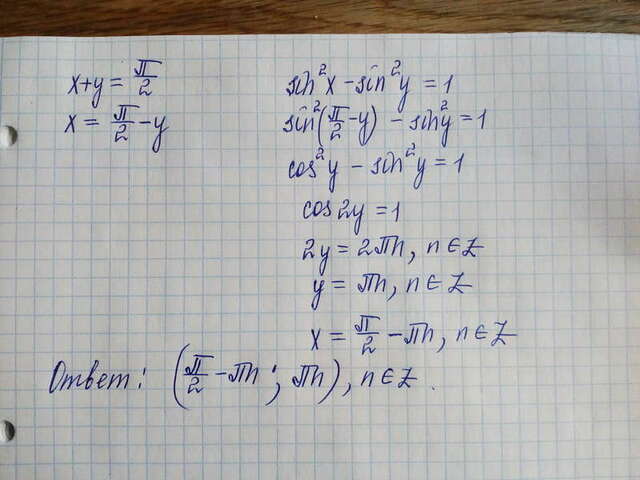 x+y = π/2
x = π/2 - y
sin²x - sin²y = 1
sin²(π/2 - y) - sin²y = 1
cos²y - sin²y = 1
cos 2y = 1
2y = 2πn, n ∈ Z
y = πn, n ∈ Z
x = π/2 - πn, n ∈ Z
Ответ: (π/2 - πn ; πn), n ∈ Z.